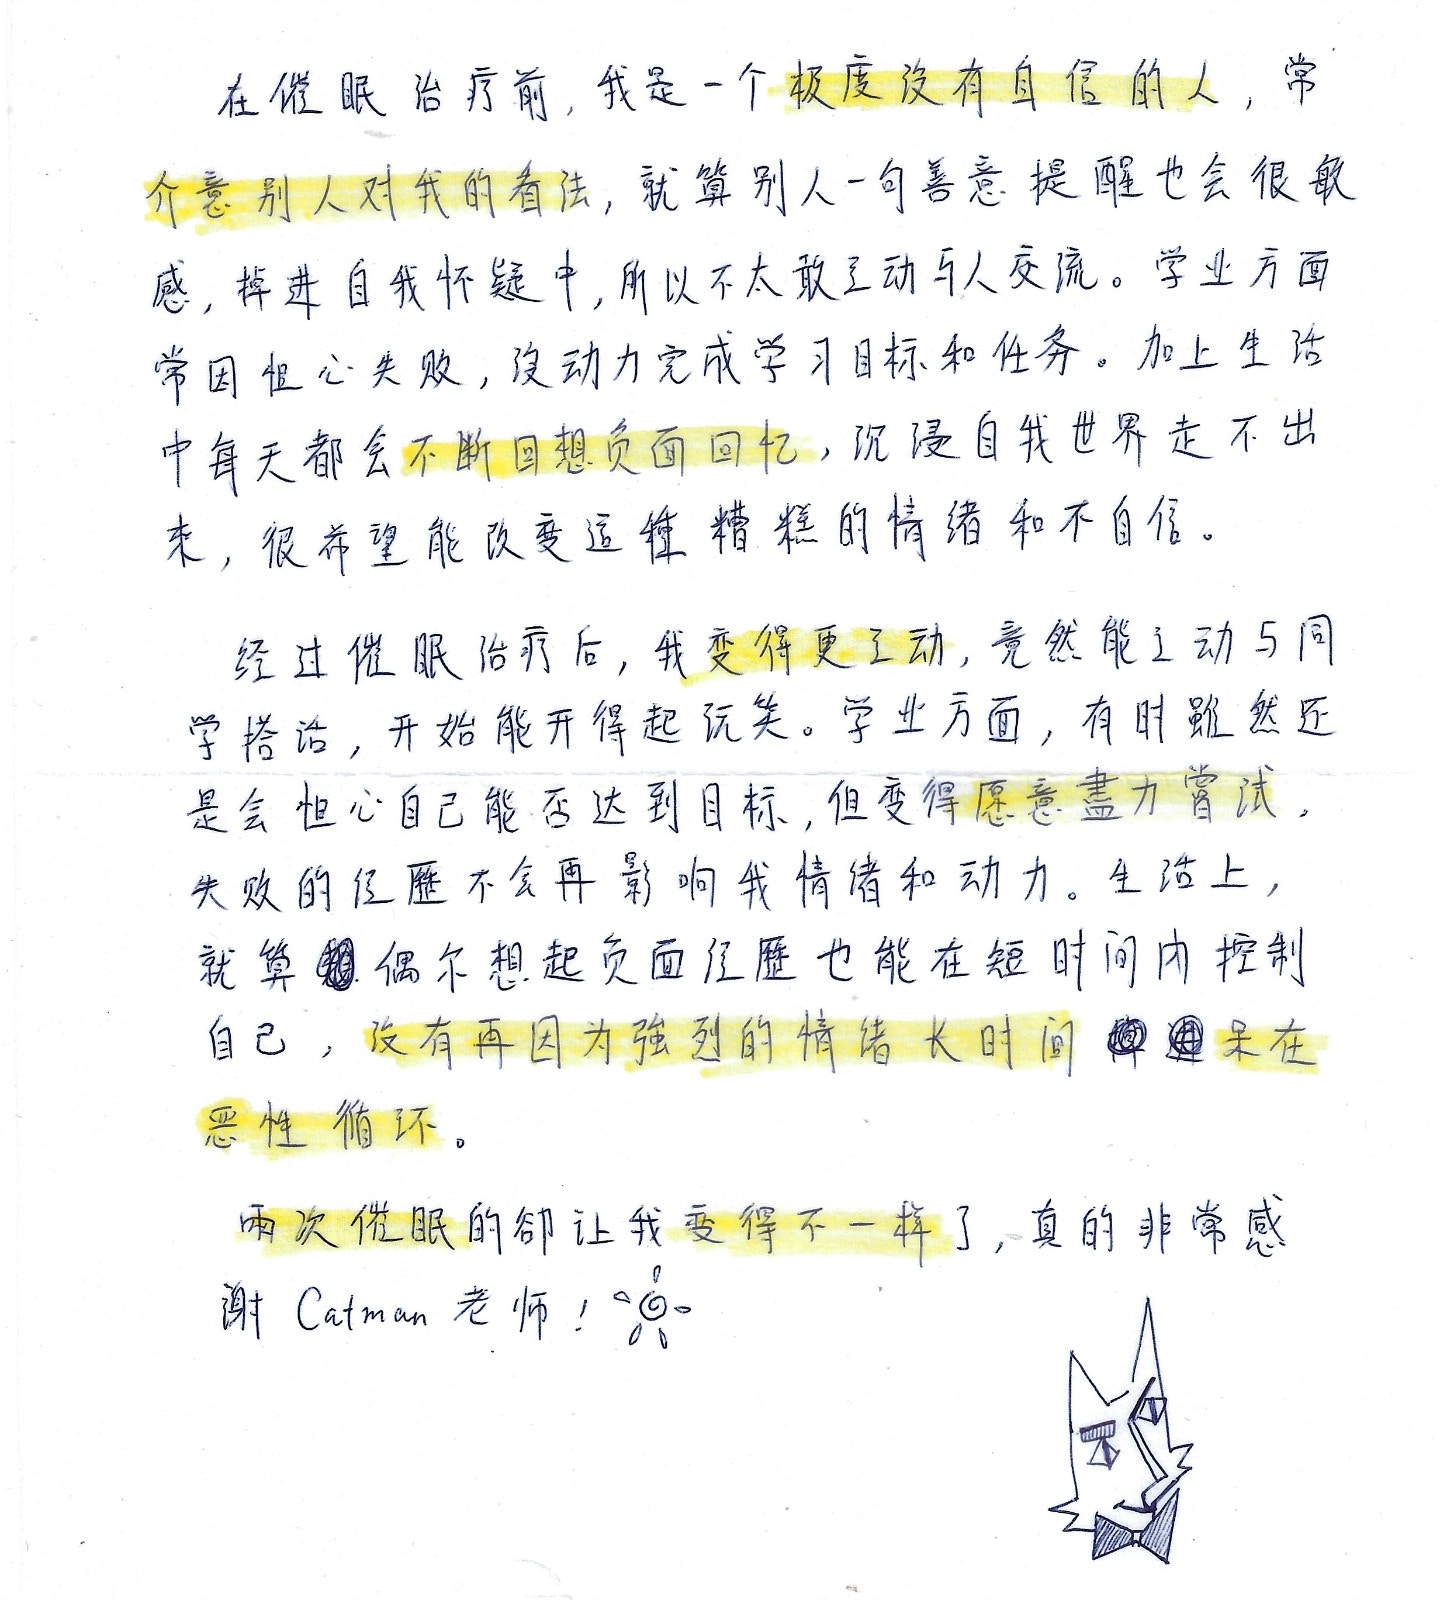 在催眠治疗前，我是一个极度没有自信的人，常
介意别人对我的看法，就算别人一句善意提醒也会很敏
感，掉进自我怀疑中，所以不太敢主动与人交流。学业方面
常因怛心失败，没动力完成学习目标和任务。加上生活
中每天都会不断回想负面回忆，沉浸自我世界走不出
来，很希望能改变這種糟糕的情绪和不自信。
经过催眠治疗后，我变得更主动，竟然能主动与同
学搭话，开始能开得起玩笑。学业方面，有时雖然还
是会怛心自己能否达到目标，但变得愿意盡力嘗试，
失败的经歷不会再影响我情绪和动力。生活上，
就算偶尔想起负面经歷也能在短时间内控制
自己，没有再因为強烈的情绪长时间呆在
恶性循环。
兩次催眠的卻让我变得不一样了，真的非常感
谢 Catman 老师！